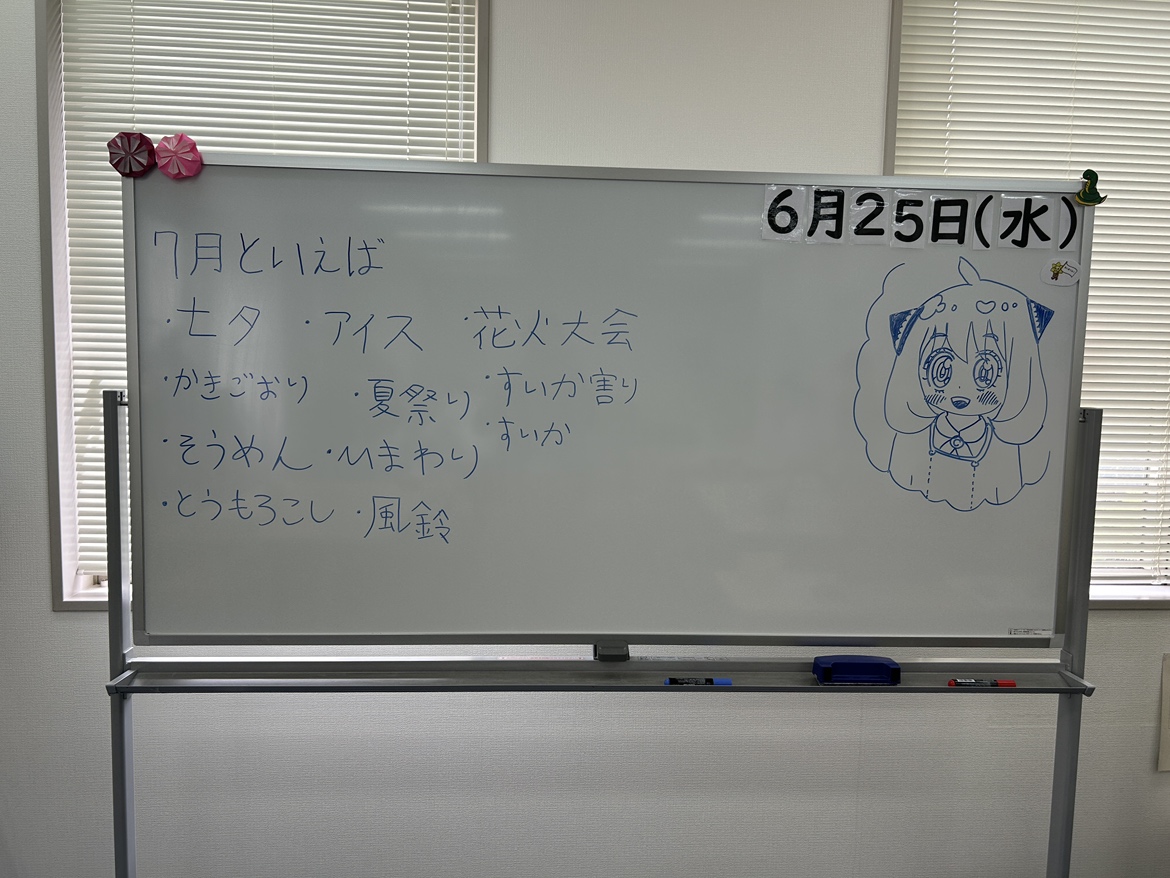 6月25日(水)
7月といえば
・七夕 ・アイス ・花火大会
・かきごおり ・夏祭り ・すいか割り
・すいか
・そうめん ・ひまわり
・とうもろこし ・風鈴